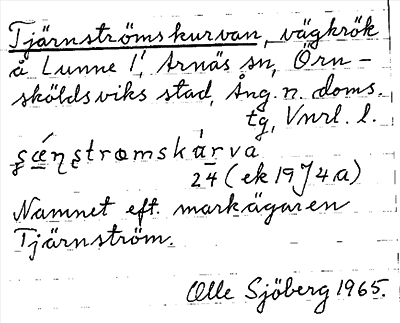 Tjärnströmskurvan, vägkrök
å Lunne 1¹, Arnäs sn, Örn-
sköldsviks stad, Ång. n. doms.
tg, Vnrl. l.
24 (ek 19 J4a)
Namnet eft. markägaren
Tjärnström.
Olle Sjöberg 1965.